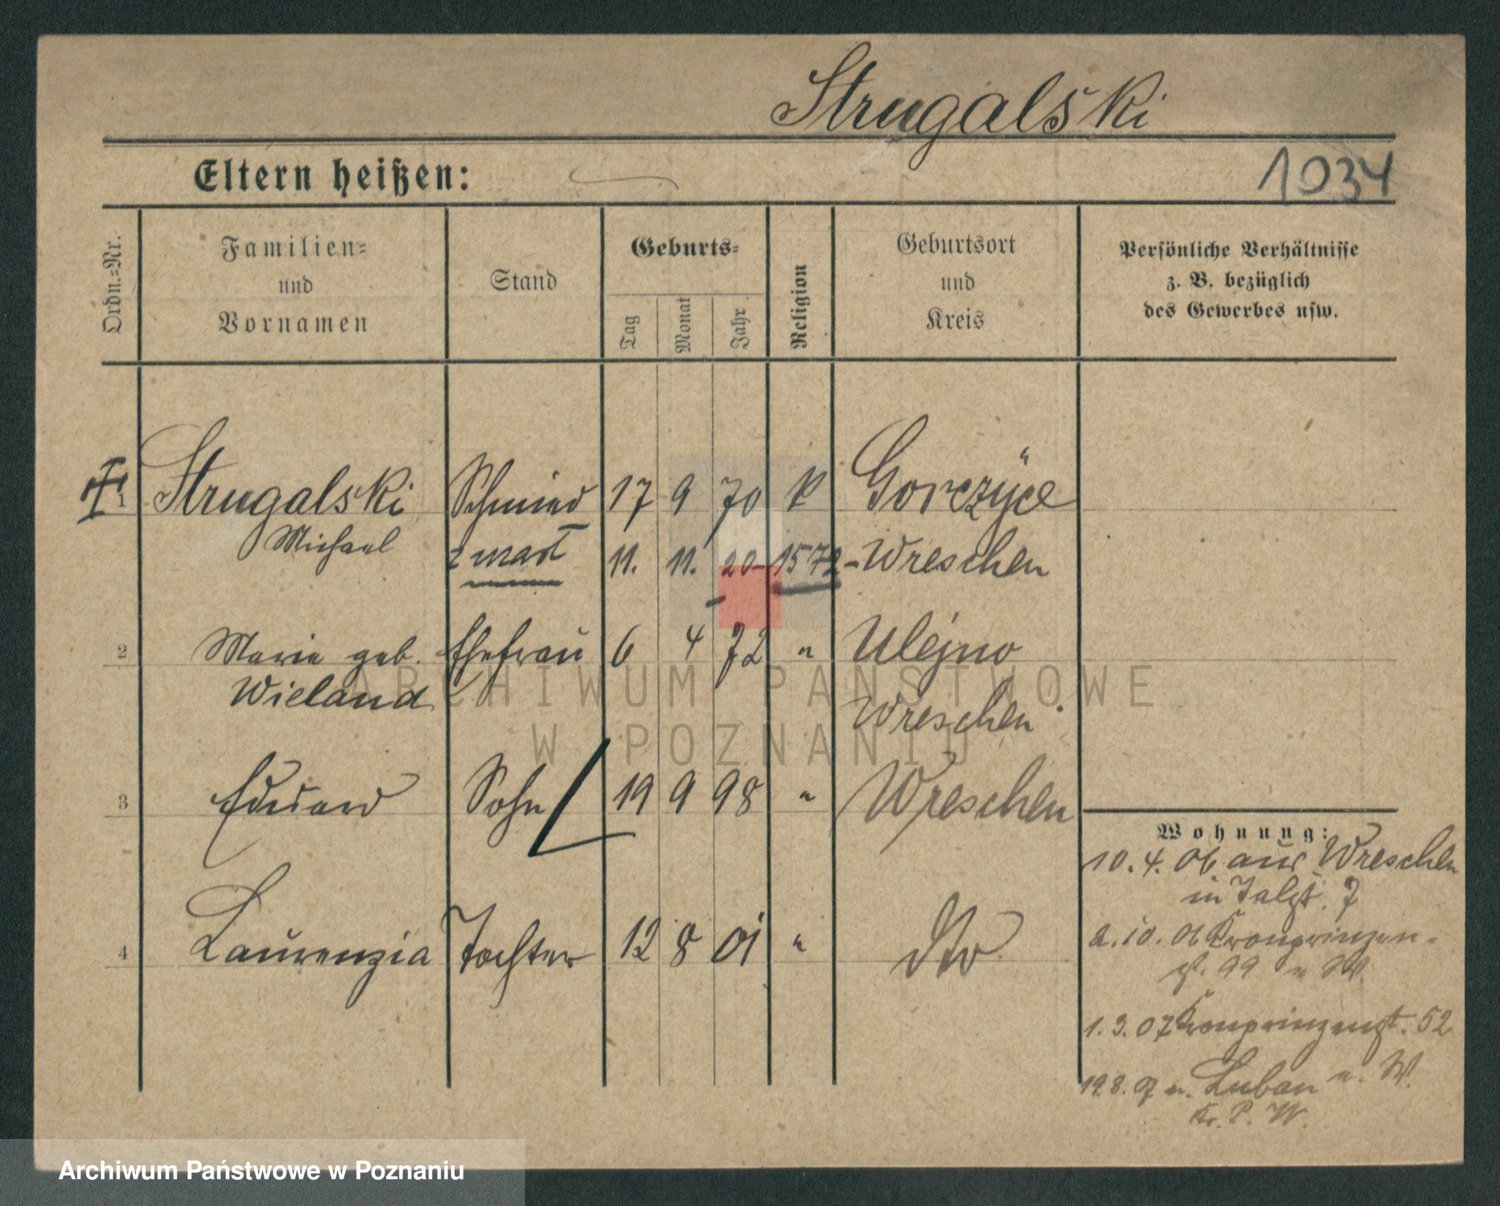 Strugalski
Eltern heißen:
1034
Ordn.=Nr.
Familien=
und
Vornamen
Stand
Geburts=
Tag
Monat
Jahr
Religion
Geburtsort
und
Kreis
Persönliche Verhältnisse
z. B. bezüglich
des Gewerbes usw.
1 Strugalski Schmied 17 9 70 k Gorczyce
Michael 11. 11. 20 - 1572 - Wreschen
2 Marie geb. Ehefrau 6 4 72 " Ulejno
Wieland Wreschen
3 Eduard Sohn 19 9 98 " Wreschen
4 Laurenzia Tochter 12 8 01 " dto
Wohnung:
10. 4. 06 aus Wreschen
in 7
2. 10. 06 Kronprinzen-
st. 99 u W.
1. 3. 07 Kronprinzenst. 52
19.8. 07 n. Luban u. W.
Kr. P. W.
ARCHIWUM PAŃSTWOWE
W POZNANIU
Archiwum Państwowe w Poznaniu